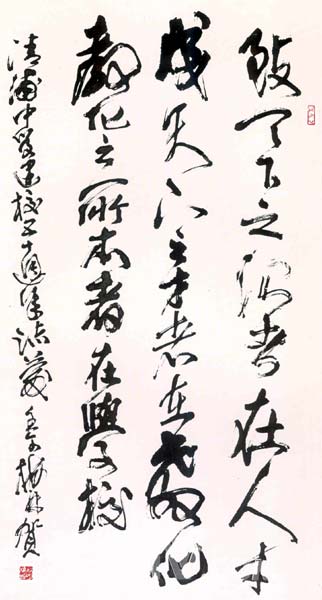 致天下之治者在人才
成天下之才者在教化
教化之所本者在學校
清浦中學建校五十週年誌慶 賀